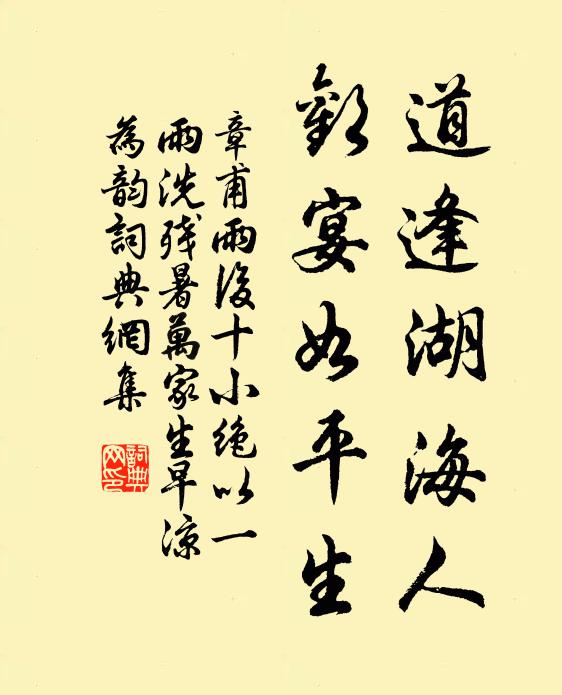 道逢湖海人
歡宴如平生
章甫雨後十小絶以一
雨洗残暑萬家生早涼
為韵詞典網集
詞典
网印